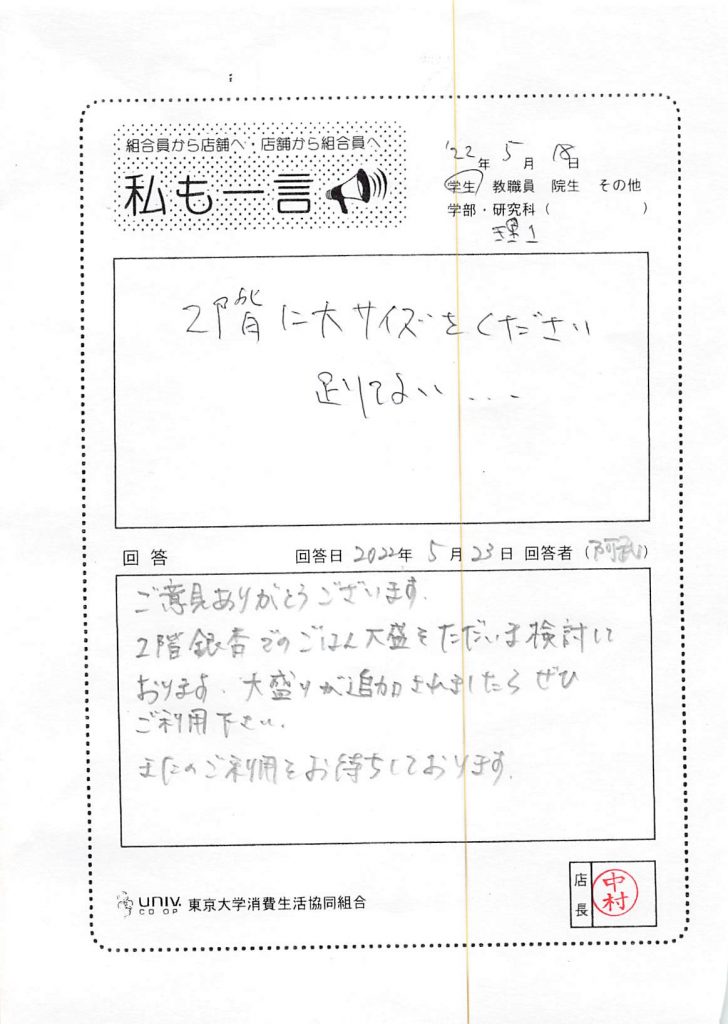 組合員から店舗へ・店舗から組合員へ
私も一言
'22年 5月 18日
学生 教職員 院生 その他
学部・研究科 ( )
理1
2階に大サイズをください
足りてない...
回答 回答日 2022年 5月 23日 回答者 (阿武)
ご意見ありがとうございます.
2階銀杏でのごはん大盛をただいま検討して
おります. 大盛りが追加されましたらぜひ
ご利用下さい.
またのご利用をお待ちしております.
UNIV. CO-OP 東京大学消費生活協同組合
店長 中村